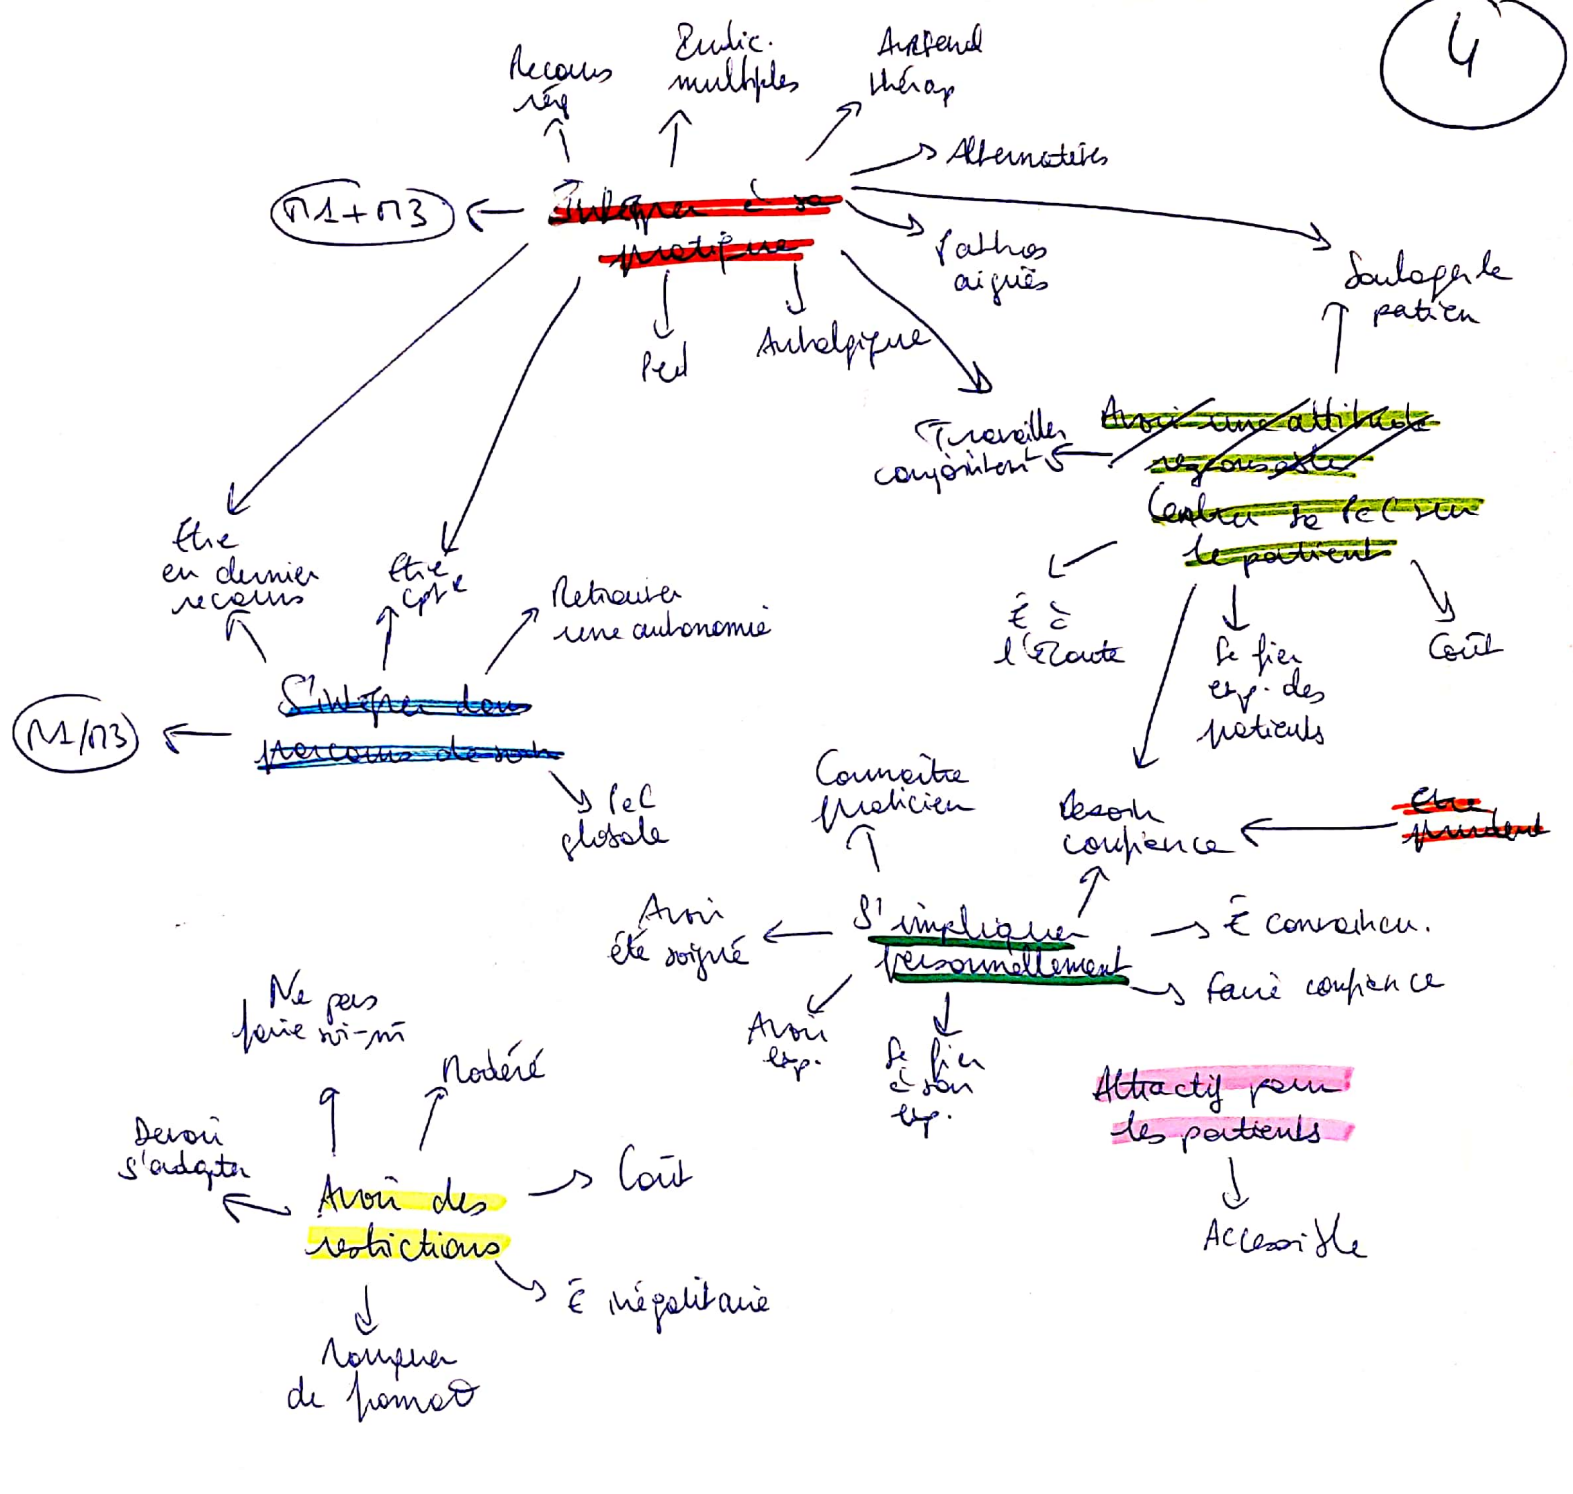 4
Recours
rég
Indic.
multiples
Arsenal
thérap
Alternatives
M1+M3
Intégrer à sa
pratique
Pathos
aiguës
Soulager le
patien
PeC
Antalgique
Travailler
conjointent
Avoir une attitude
responsable
Centrer sa PeC sur
le patient
Etre
en dernier
recours
Etre
cpt
Retrouver
une autonomie
Ê à
l'écoute
Se fier
exp. des
patients
Coût
S'intégrer dans
parcours de soin
M1/M3
PeC
globale
Connaître
praticien
Besoin
confiance
Etre
prudent
Avoir
été soigné
S'impliquer
personnellement
Ê convaincu.
Faire confiance
Avoir
exp.
Se fier
à son
exp.
Ne pas
faire soi-m
Modéré
Attractif pour
les patients
Devoir
s'adapter
Avoir des
restrictions
Coût
Accessible
Ê inégalitaire
Manquer
de format